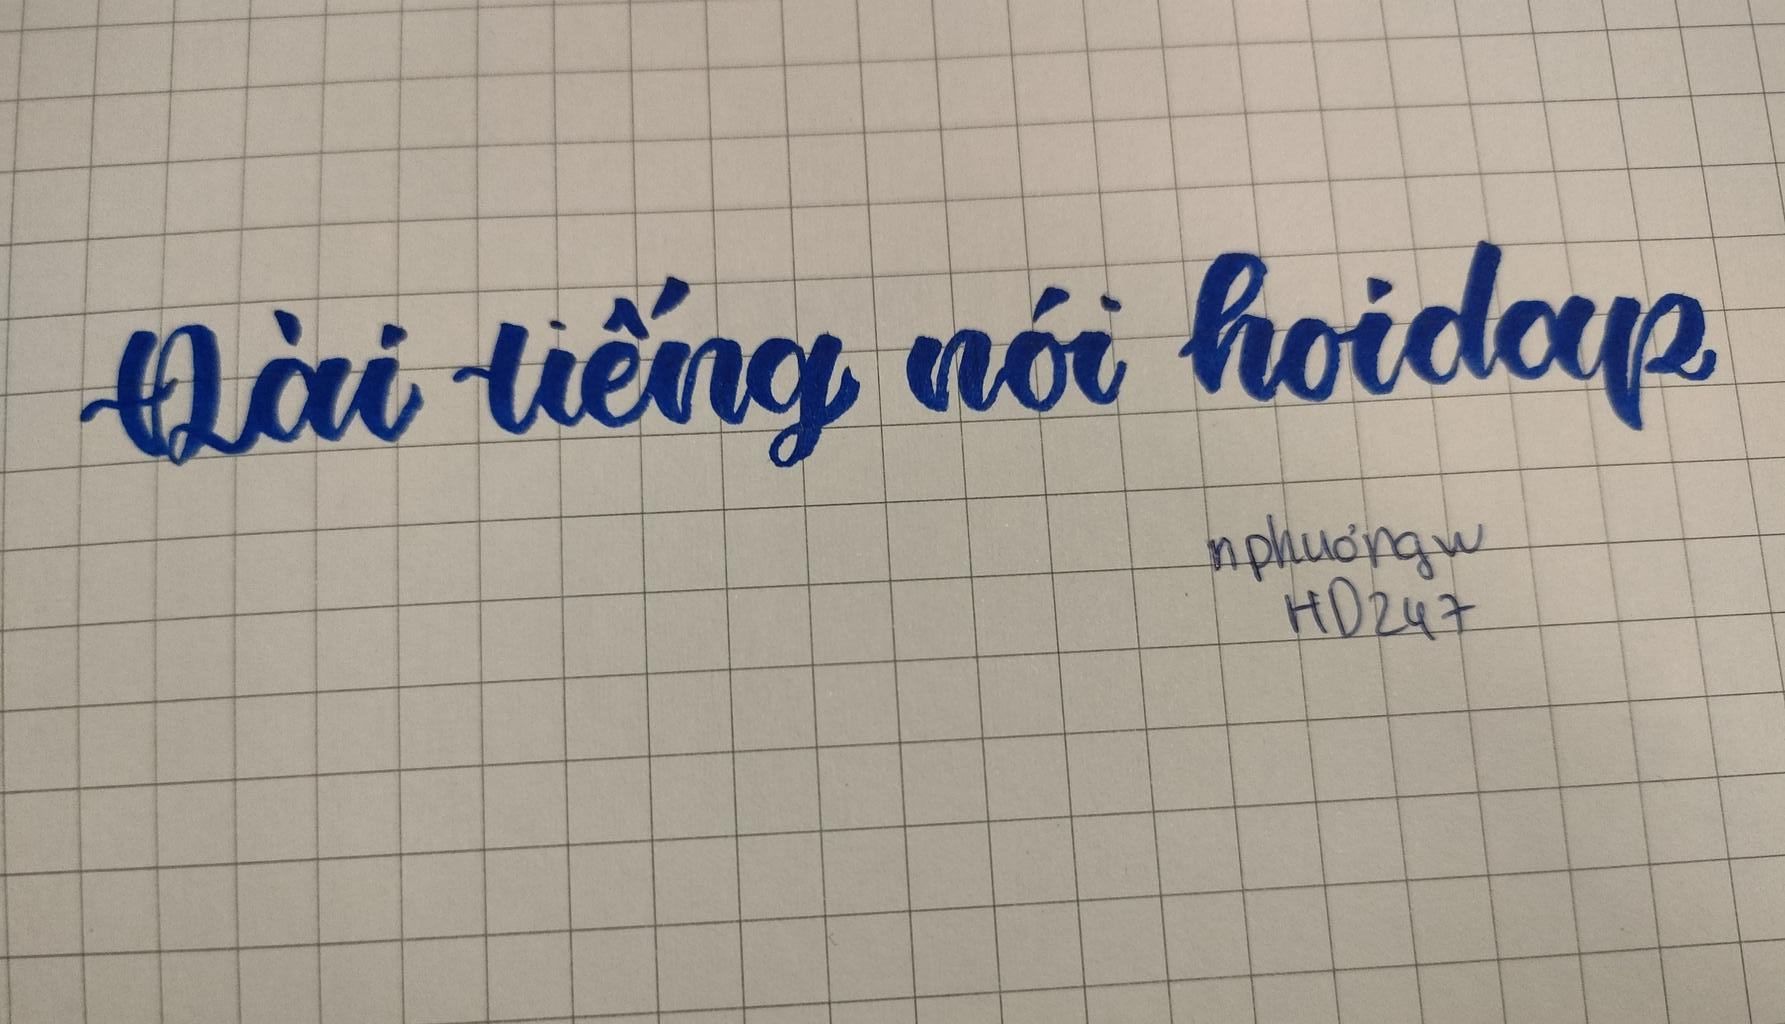 Đài tiếng nói hoidap
nphuongw
HD247